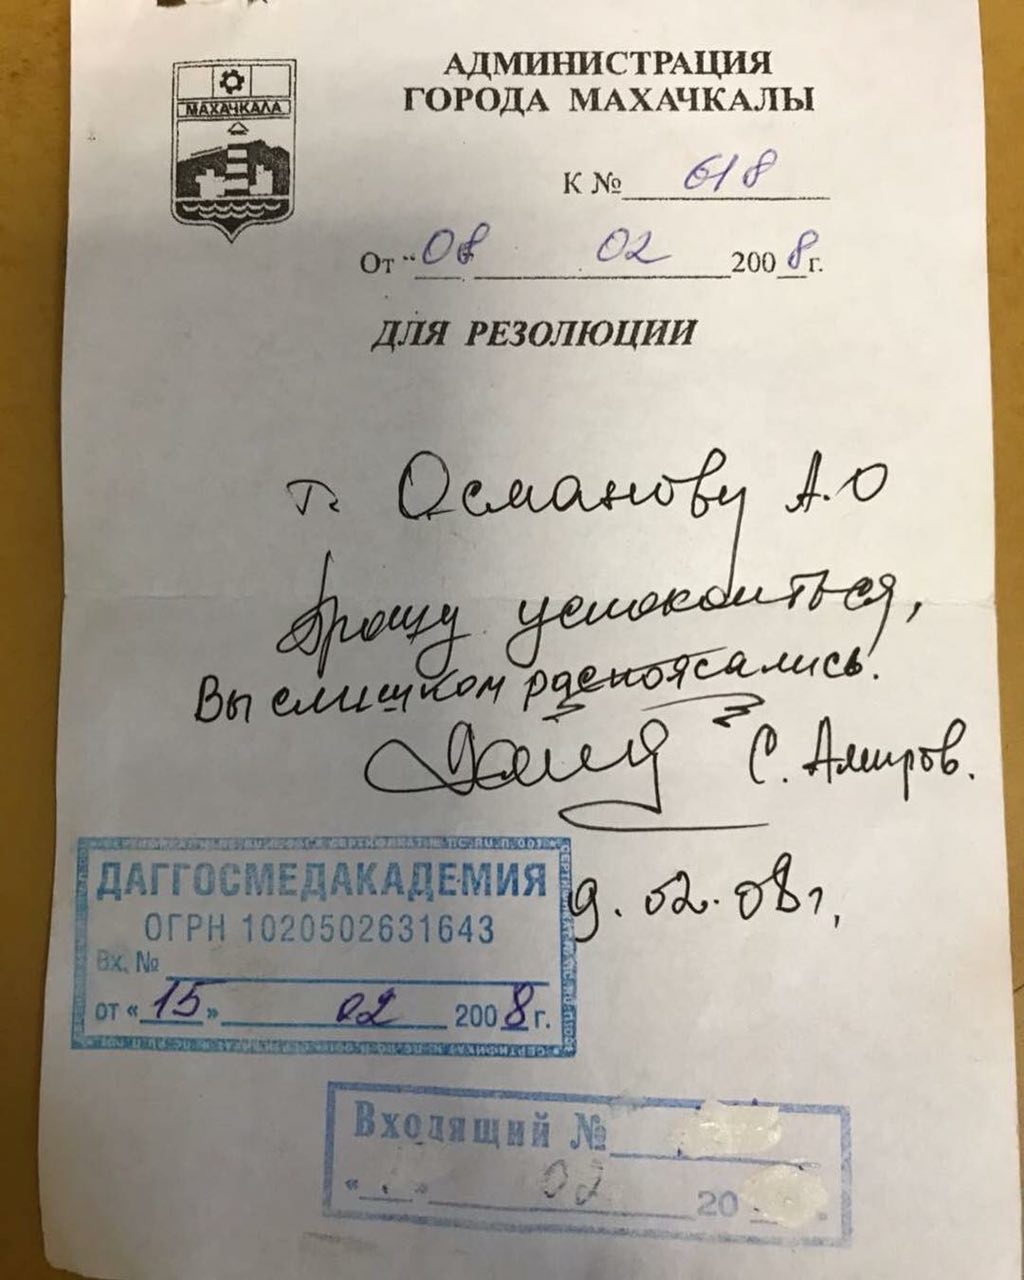 МАХАЧКАЛА
АДМИНИСТРАЦИЯ
ГОРОДА МАХАЧКАЛЫ
К № 618
От “08 02 2008г.
ДЛЯ РЕЗОЛЮЦИИ
г. Османову А.О
Прошу успокоиться,
Вы слишком распоясались.
С. Амиров.
9.02.08г,
ДАГГОСМЕДАКАДЕМИЯ
ОГРН 1020502631643
Вх. №
от «15» 02 2008г.
Входящий №
« » 02 20